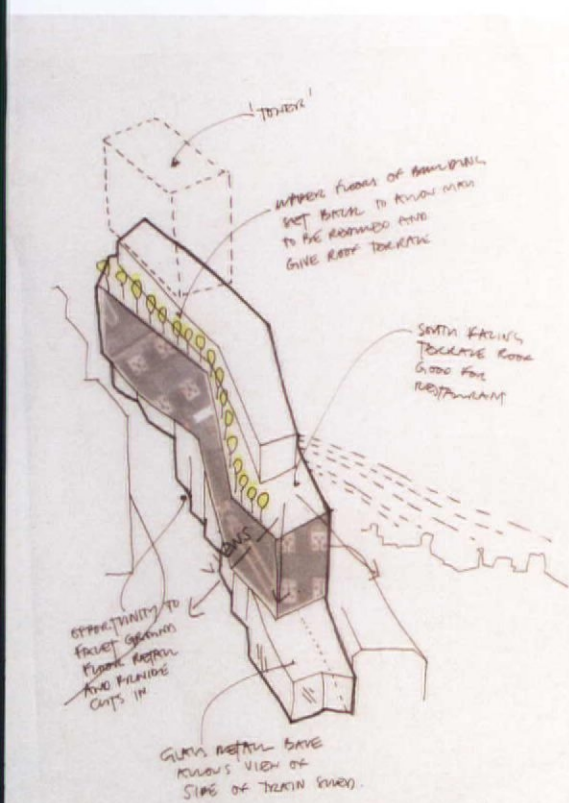 'TOWER'
UPPER FLOORS OF BUILDING
SET BACK TO ALLOW MASS
TO BE REDUCED AND
GIVE ROOF TERRACE
SOUTH FACING
TERRACE ROOF
GOOD FOR
RESTAURANT
OPPORTUNITY TO
FACET GROUND
FLOOR RETAIL
AND PROVIDE
CUTS IN
GLASS RETAIL BASE
ALLOWS VIEW OF
SIDE OF TRAIN SHED.